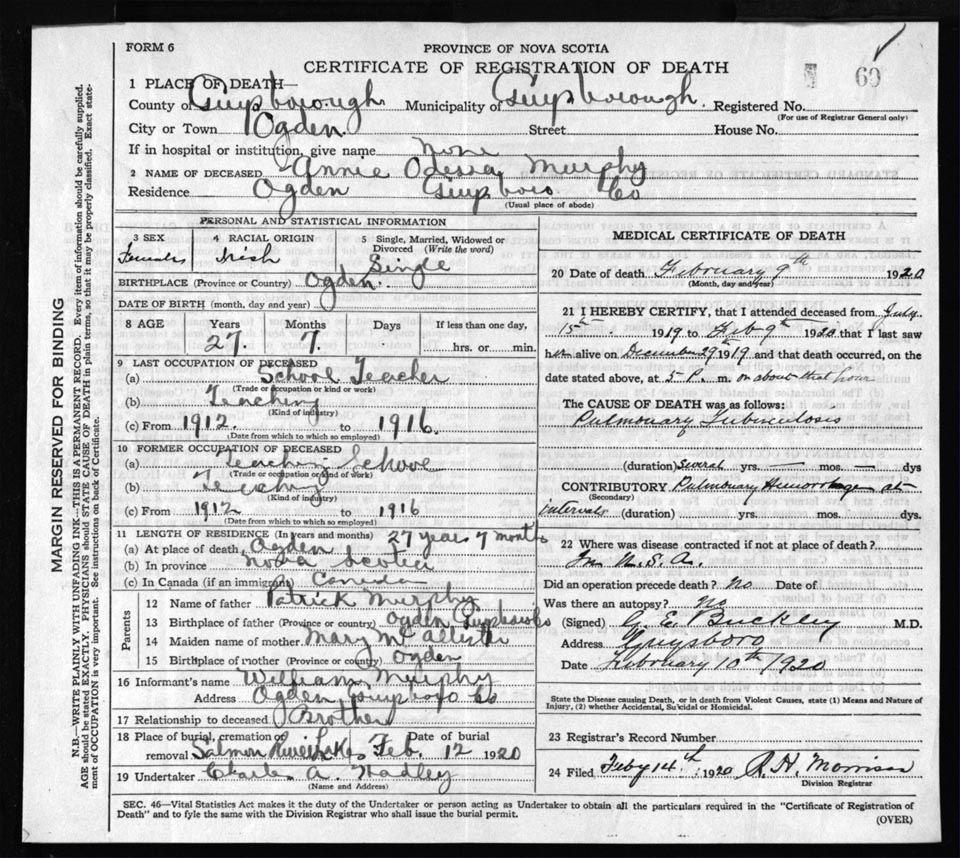 FORM 6
PROVINCE OF NOVA SCOTIA
CERTIFICATE OF REGISTRATION OF DEATH
60
1 PLACE OF DEATH—
County of Guysborough Municipality of Guysborough. Registered No.
(For use of Registrar General only)
City or Town Ogden. Street House No.
If in hospital or institution, give name None
2 NAME OF DECEASED Annie Odessa Murphy
Residence Ogden Guysboro Co
(Usual place of abode)
PERSONAL AND STATISTICAL INFORMATION
3 SEX 4 RACIAL ORIGIN 5 Single, Married, Widowed or Divorced (Write the word)
Female Irish Single
BIRTHPLACE (Province or Country) Ogden.
DATE OF BIRTH (month, day and year)
8 AGE Years Months Days If less than one day,
27. 7. hrs. or min.
9 LAST OCCUPATION OF DECEASED
(a) School Teacher
(Trade or occupation or kind of work)
(b) Teaching
(Kind of industry)
(c) From 1912. to 1916.
(Date from which to which so employed)
10 FORMER OCCUPATION OF DECEASED
(a) Teaching School
(Trade or occupation or kind of work)
(b) Teaching
(Kind of industry)
(c) From 1912 to 1916
(Date from which to which so employed)
11 LENGTH OF RESIDENCE (In years and months)
(a) At place of death Ogden 27 years 7 months
(b) In province Nova Scotia
(c) In Canada (if an immigrant) Canada
Parents
12 Name of father Patrick Murphy
13 Birthplace of father (Province or country) Ogden Guysboro Co
14 Maiden name of mother Mary McAllister
15 Birthplace of mother (Province or country) Ogden
16 Informant's name William Murphy
Address Ogden Guysboro Co
17 Relationship to deceased Brother
18 Place of burial, cremation or removal Date of burial
Salmon River Lakes Feb. 12 1920
19 Undertaker Charles A. Hadley
(Name and Address)
MEDICAL CERTIFICATE OF DEATH
20 Date of death February 9th 1920
(Month, day and year)
21 I HEREBY CERTIFY, that I attended deceased from July
15th 1919 to Feb 9th 1920 that I last saw
her alive on December 29th 1919 and that death occurred, on the
date stated above, at 5 P. m. on about that hour
The CAUSE OF DEATH was as follows:
Pulmonary Tuberculosis
(duration) Several yrs. — mos. — dys
CONTRIBUTORY Pulmonary Hemorrhages at
(Secondary)
intervals (duration) yrs. mos. dys.
22 Where was disease contracted if not at place of death?
In U. S. A.
Did an operation precede death? No Date of
Was there an autopsy? No
(Signed) G. E. Buckley M.D.
Address Guysboro
Date February 10th 1920
State the Disease causing Death, or in death from Violent Causes, state (1) Means and Nature of
Injury, (2) whether Accidental, Suicidal or Homicidal.
23 Registrar's Record Number
24 Filed Feby 14th 1920 R. H. Morrison
Division Registrar
SEC. 46—Vital Statistics Act makes it the duty of the Undertaker or person acting as Undertaker to obtain all the particulars required in the "Certificate of Registration of
Death" and to fyle the same with the Division Registrar who shall issue the burial permit.
(OVER)
MARGIN RESERVED FOR BINDING
N.B.—WRITE PLAINLY WITH UNFADING INK—THIS IS A PERMANENT RECORD. Every item of information should be carefully supplied.
AGE should be stated EXACTLY. PHYSICIANS should STATE CAUSE OF DEATH in plain terms, so that it may be properly classified. Exact state-
ment of OCCUPATION is very important. See instructions on back of Certificate.